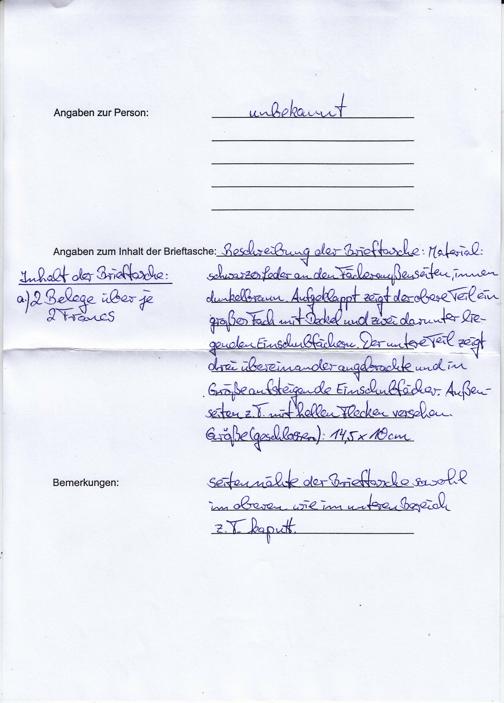 Angaben zur Person: unbekannt
Angaben zum Inhalt der Brieftasche: Beschreibung der Brieftasche: Material:
schwarzes Leder an den Fächeraußenseiten, innen
dunkelbraun. Aufgeklappt zeigt der obere Teil ein
großes Fach mit Deckel und zwei darunter lie-
genden Einschubfächern. Der untere Teil zeigt
drei übereinander angebrachte und in
Größe aufsteigende Einschubfächer. Außen-
seiten z.T. mit hellen Flecken versehen.
Größe (geschlossen): 14,5 x 10 cm
Inhalt der Brieftasche:
a) 2 Belege über je
2 Francs
Bemerkungen: Seitennähte der Brieftasche sowohl
im oberen wie im unteren Bereich
z.T. kaputt.